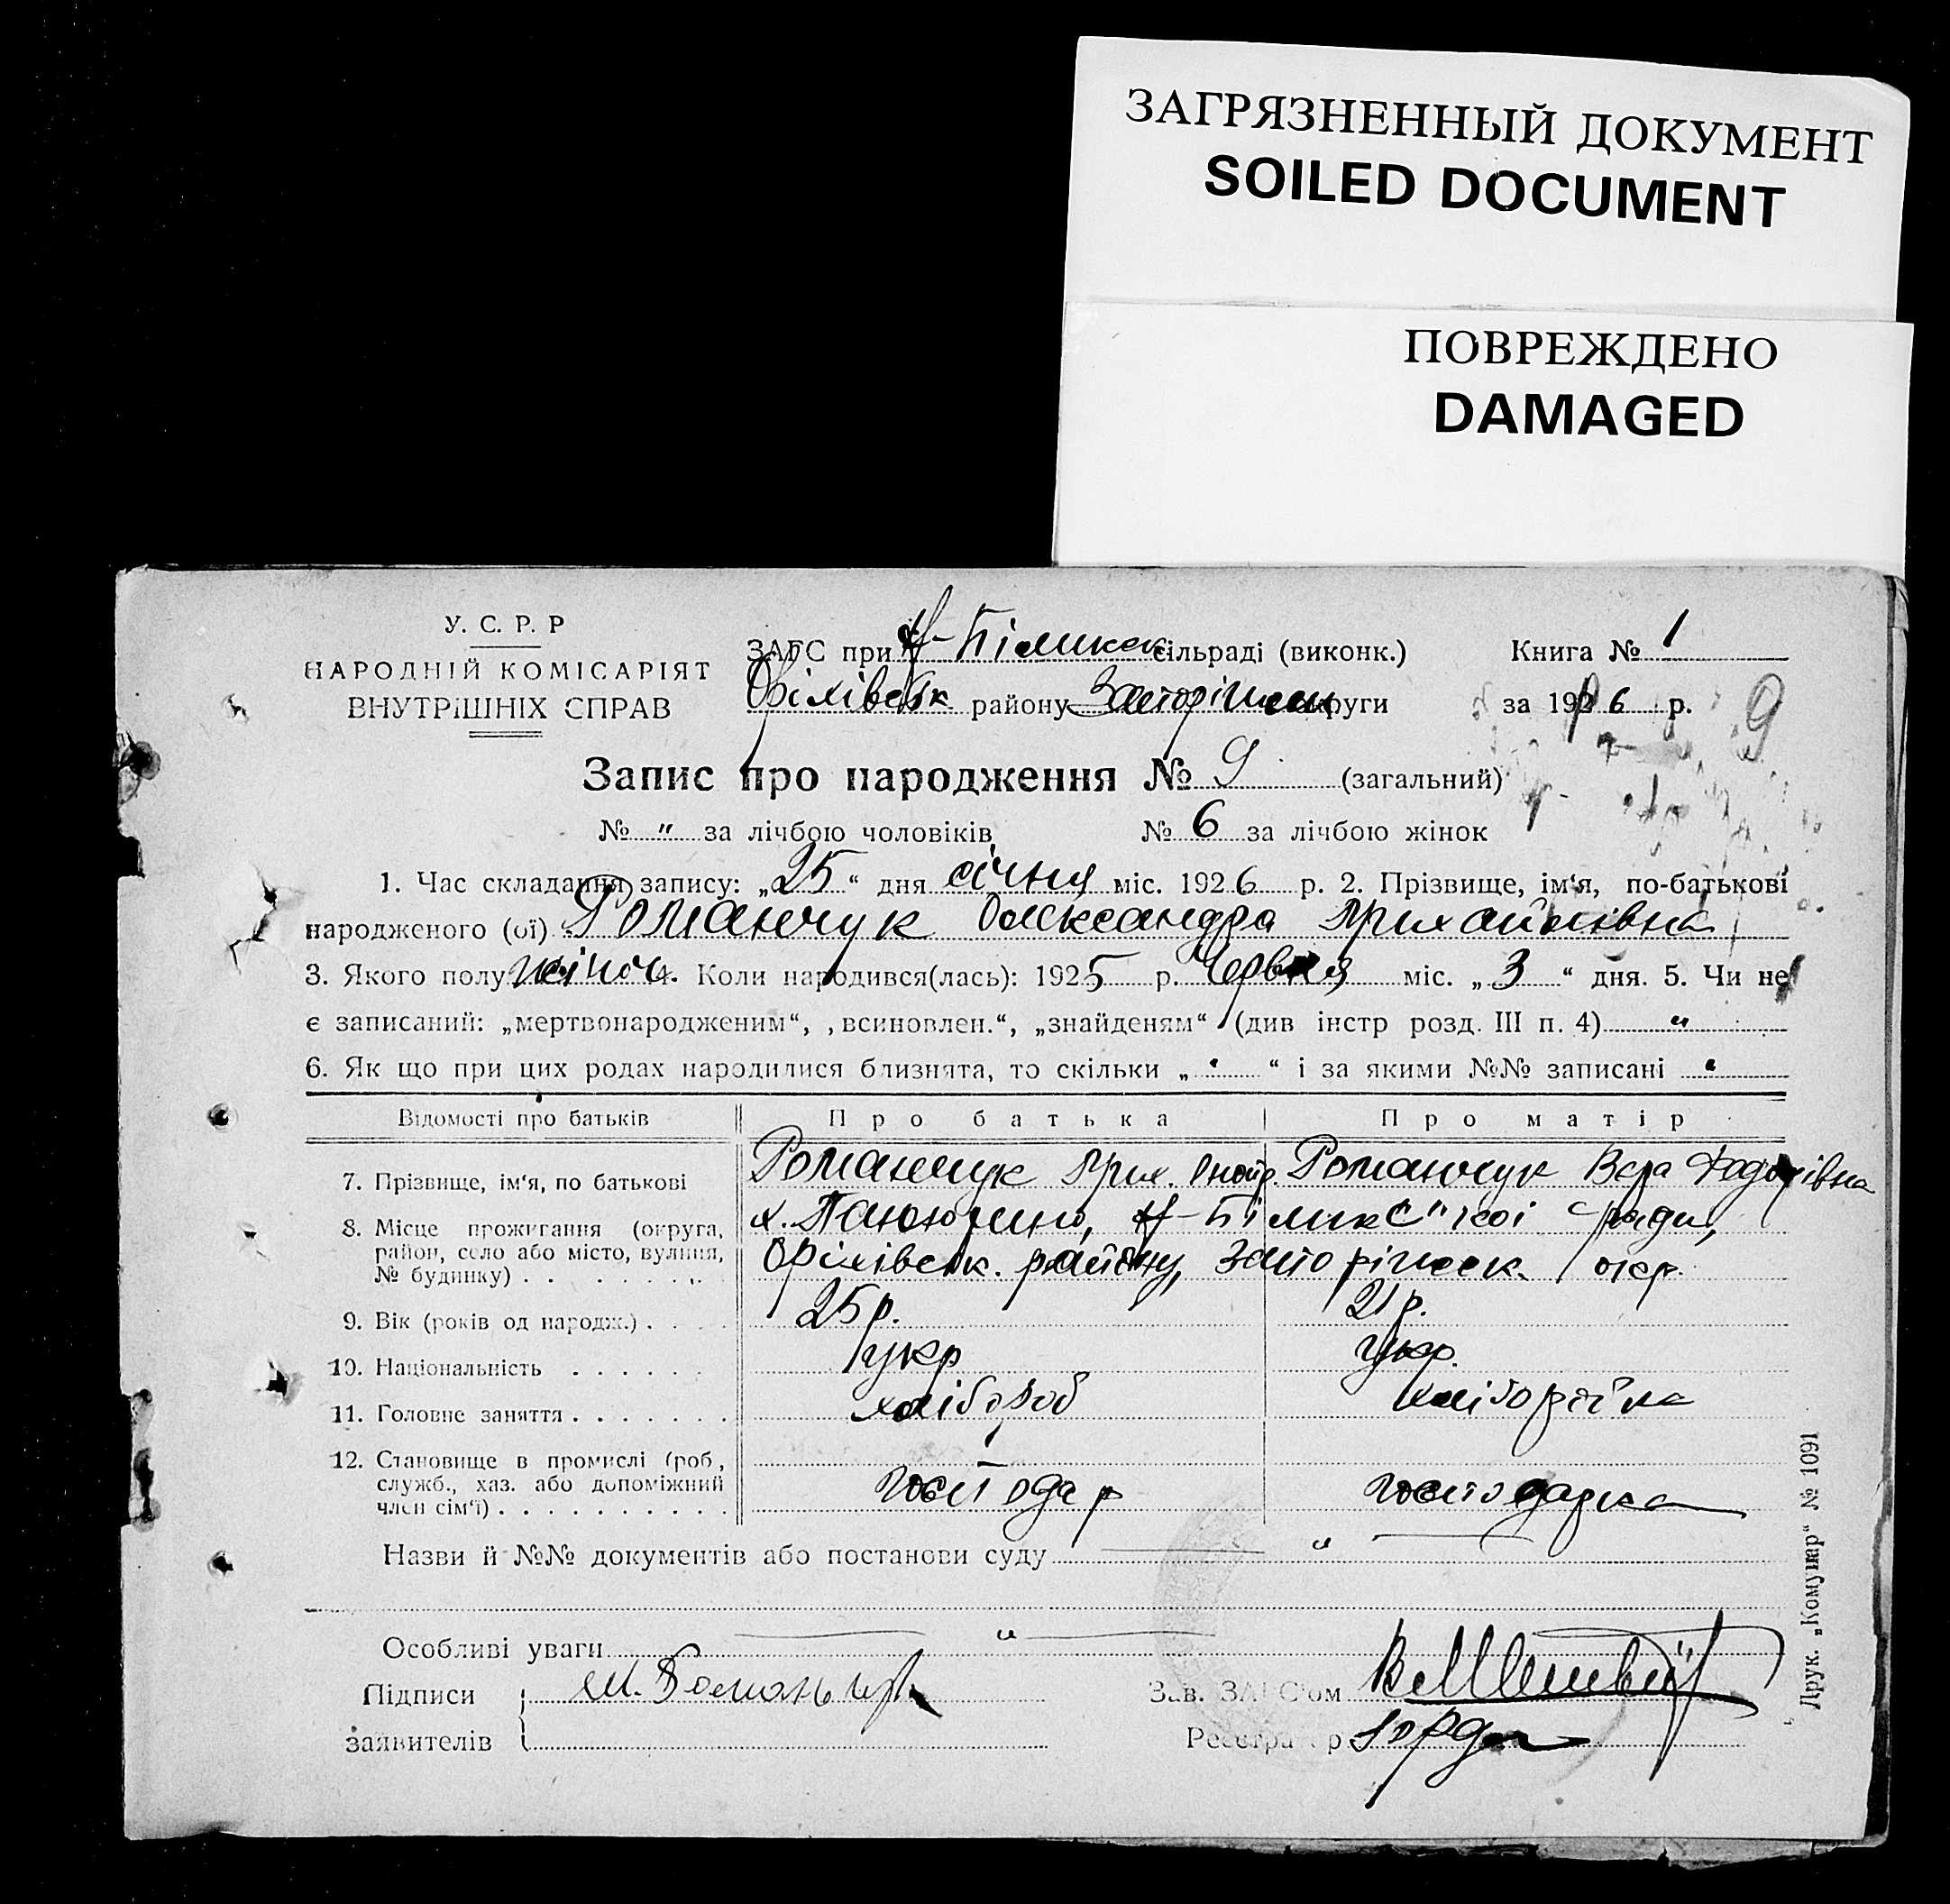 ЗАГРЯЗНЕННЫЙ ДОКУМЕНТ
SOILED DOCUMENT
ПОВРЕЖДЕНО
DAMAGED
У. С. Р. Р
НАРОДНІЙ КОМІСАРІЯТ
ВНУТРІШНІХ СПРАВ
ЗАГС при Н-Біликск сільраді (виконк.) Книга № 1
району Запоріжськ округи за 1926 р. 9
Запис про народження № 9 (загальний)
№ " за лічбою чоловіків № 6 за лічбою жінок
1. Час складання запису: „25“ дня січня міс. 1926 р. 2. Прізвище, ім‘я, по-батькові
народженого (ої) Романчук Олександра Михайлівна
3. Якого полу жіноч. 4. Коли народився(лась): 1925 р. Червня міс. „3“ дня. 5. Чи не
є записаний: „мертвонародженим“, „всиновлен.“, „знайденям“ (див інстр розд. III п. 4) "
6. Як що при цих родах народилися близнята, то скільки „ " “ і за якими №№ записані "
Відомості про батьків Про батька Про матір
7. Прізвище, ім‘я, по батькові Романчук Мих. Романчук Вера Федорівна
8. Місце проживання (округа, район, село або місто, вулиця, № будинку) х. Панютино, Н-Білик ради,
району, Запоріжськ. окр.
9. Вік (років од народж.) 25 р. 21 р.
10. Національність укр укр.
11. Головне заняття хлібороб хліборобка
12. Становище в промислі (роб., служб., хаз. або допоміжний член сім‘ї) господар господарка
Назви й №№ документів або постанови суду "
Особливі уваги "
Підписи заявителів М. Романьчук
Зав. ЗАГС‘ом
Реєстратор
Друк. „Комунар“ № 1091